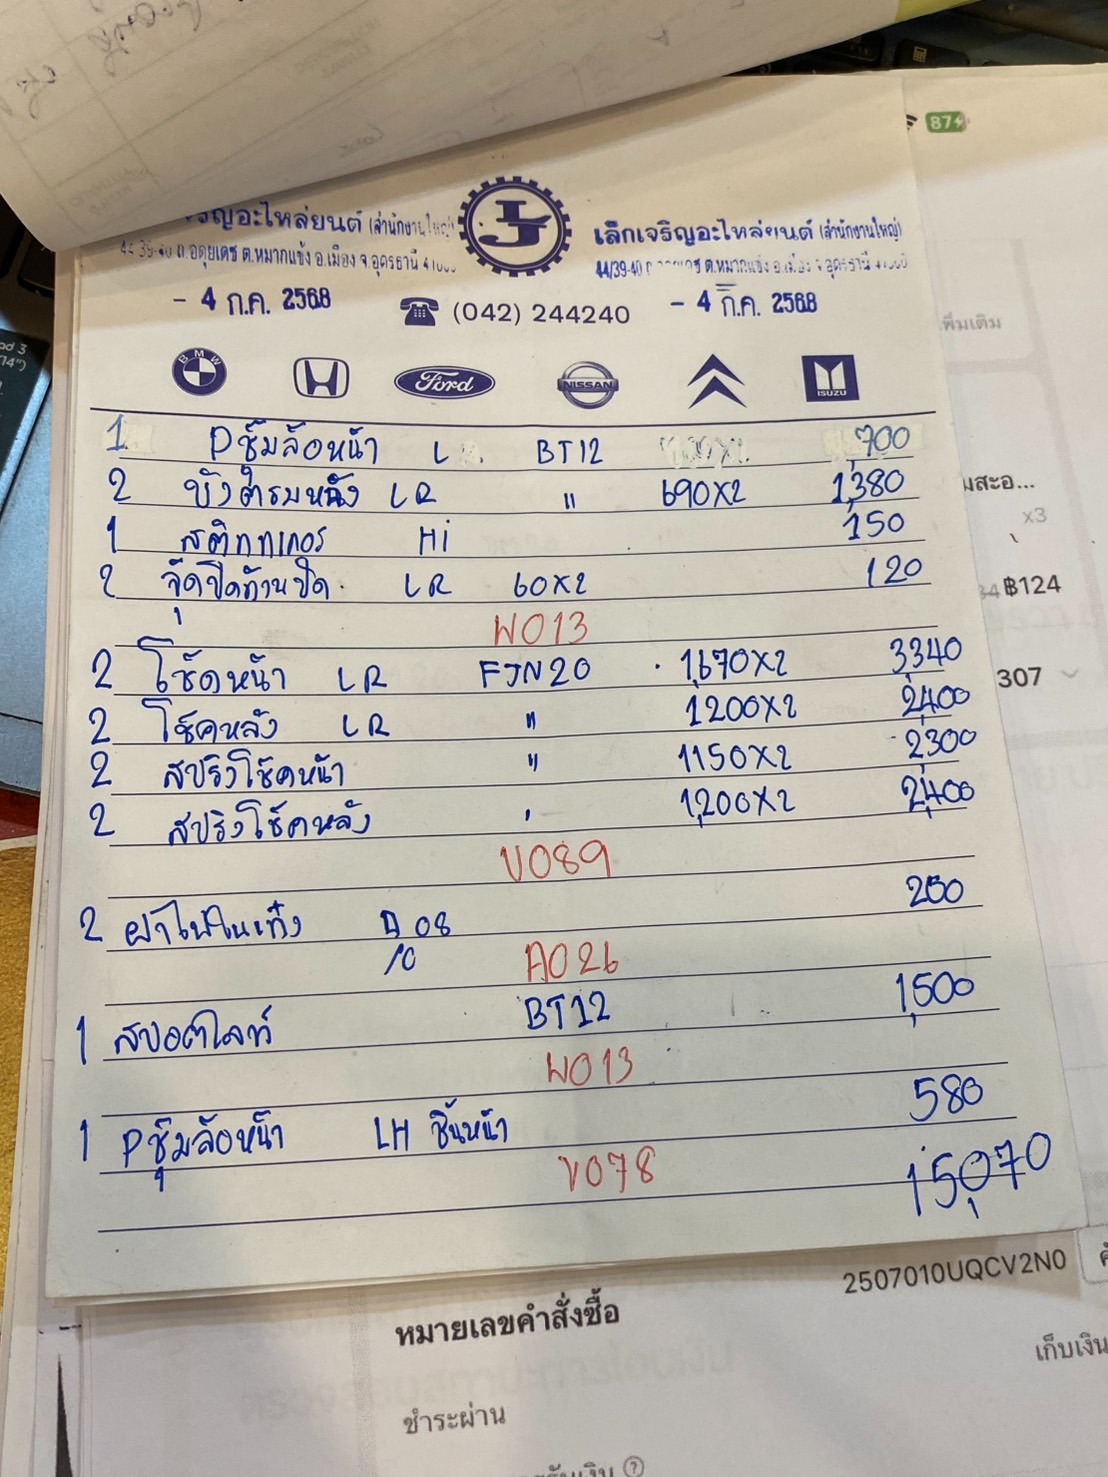 จริญอะไหล่ยนต์ (สำนักงานใหญ่)
44/39-40 ถ.อดุยเดช ต.หมากแข้ง อ.เมือง จ.อุดรธานี 41000
- 4 ก.ค. 2568
เล็กเจริญอะไหล่ยนต์ (สำนักงานใหญ่)
44/39-40 ต.หมากแข้ง อ.เมือง จ.อุดรธานี 41000
- 4 ก.ค. 2568
(042) 244240
BMW Ford NISSAN ISUZU
1 Pซุ้มล้อหน้า L BT12 700
2 บังโคลนหลัง LR " 690X2 1,380
1 สติกเกอร์ Hi 150
2 LR 60X2 120
W013
2 โช๊คหน้า LR FJN20 1,670X2 3,340
2 โช๊คหลัง LR " 1200X2 2,400
2 สปริงโช๊คหน้า " 1150X2 2,300
2 สปริงโช๊คหลัง 1,200X2 2,400
V089
2 ฝาไฟในเก๋ง 08 200
10 A026
1 สปอตไลท์ BT12 1,500
W013
1 Pซุ้มล้อหน้า LH ชิ้นหน้า 580
V078
15,070
87
เพิ่มเติม
x3
฿124
307
2507010UQCV2N0
หมายเลขคำสั่งซื้อ
เก็บเงิน
ชำระผ่าน